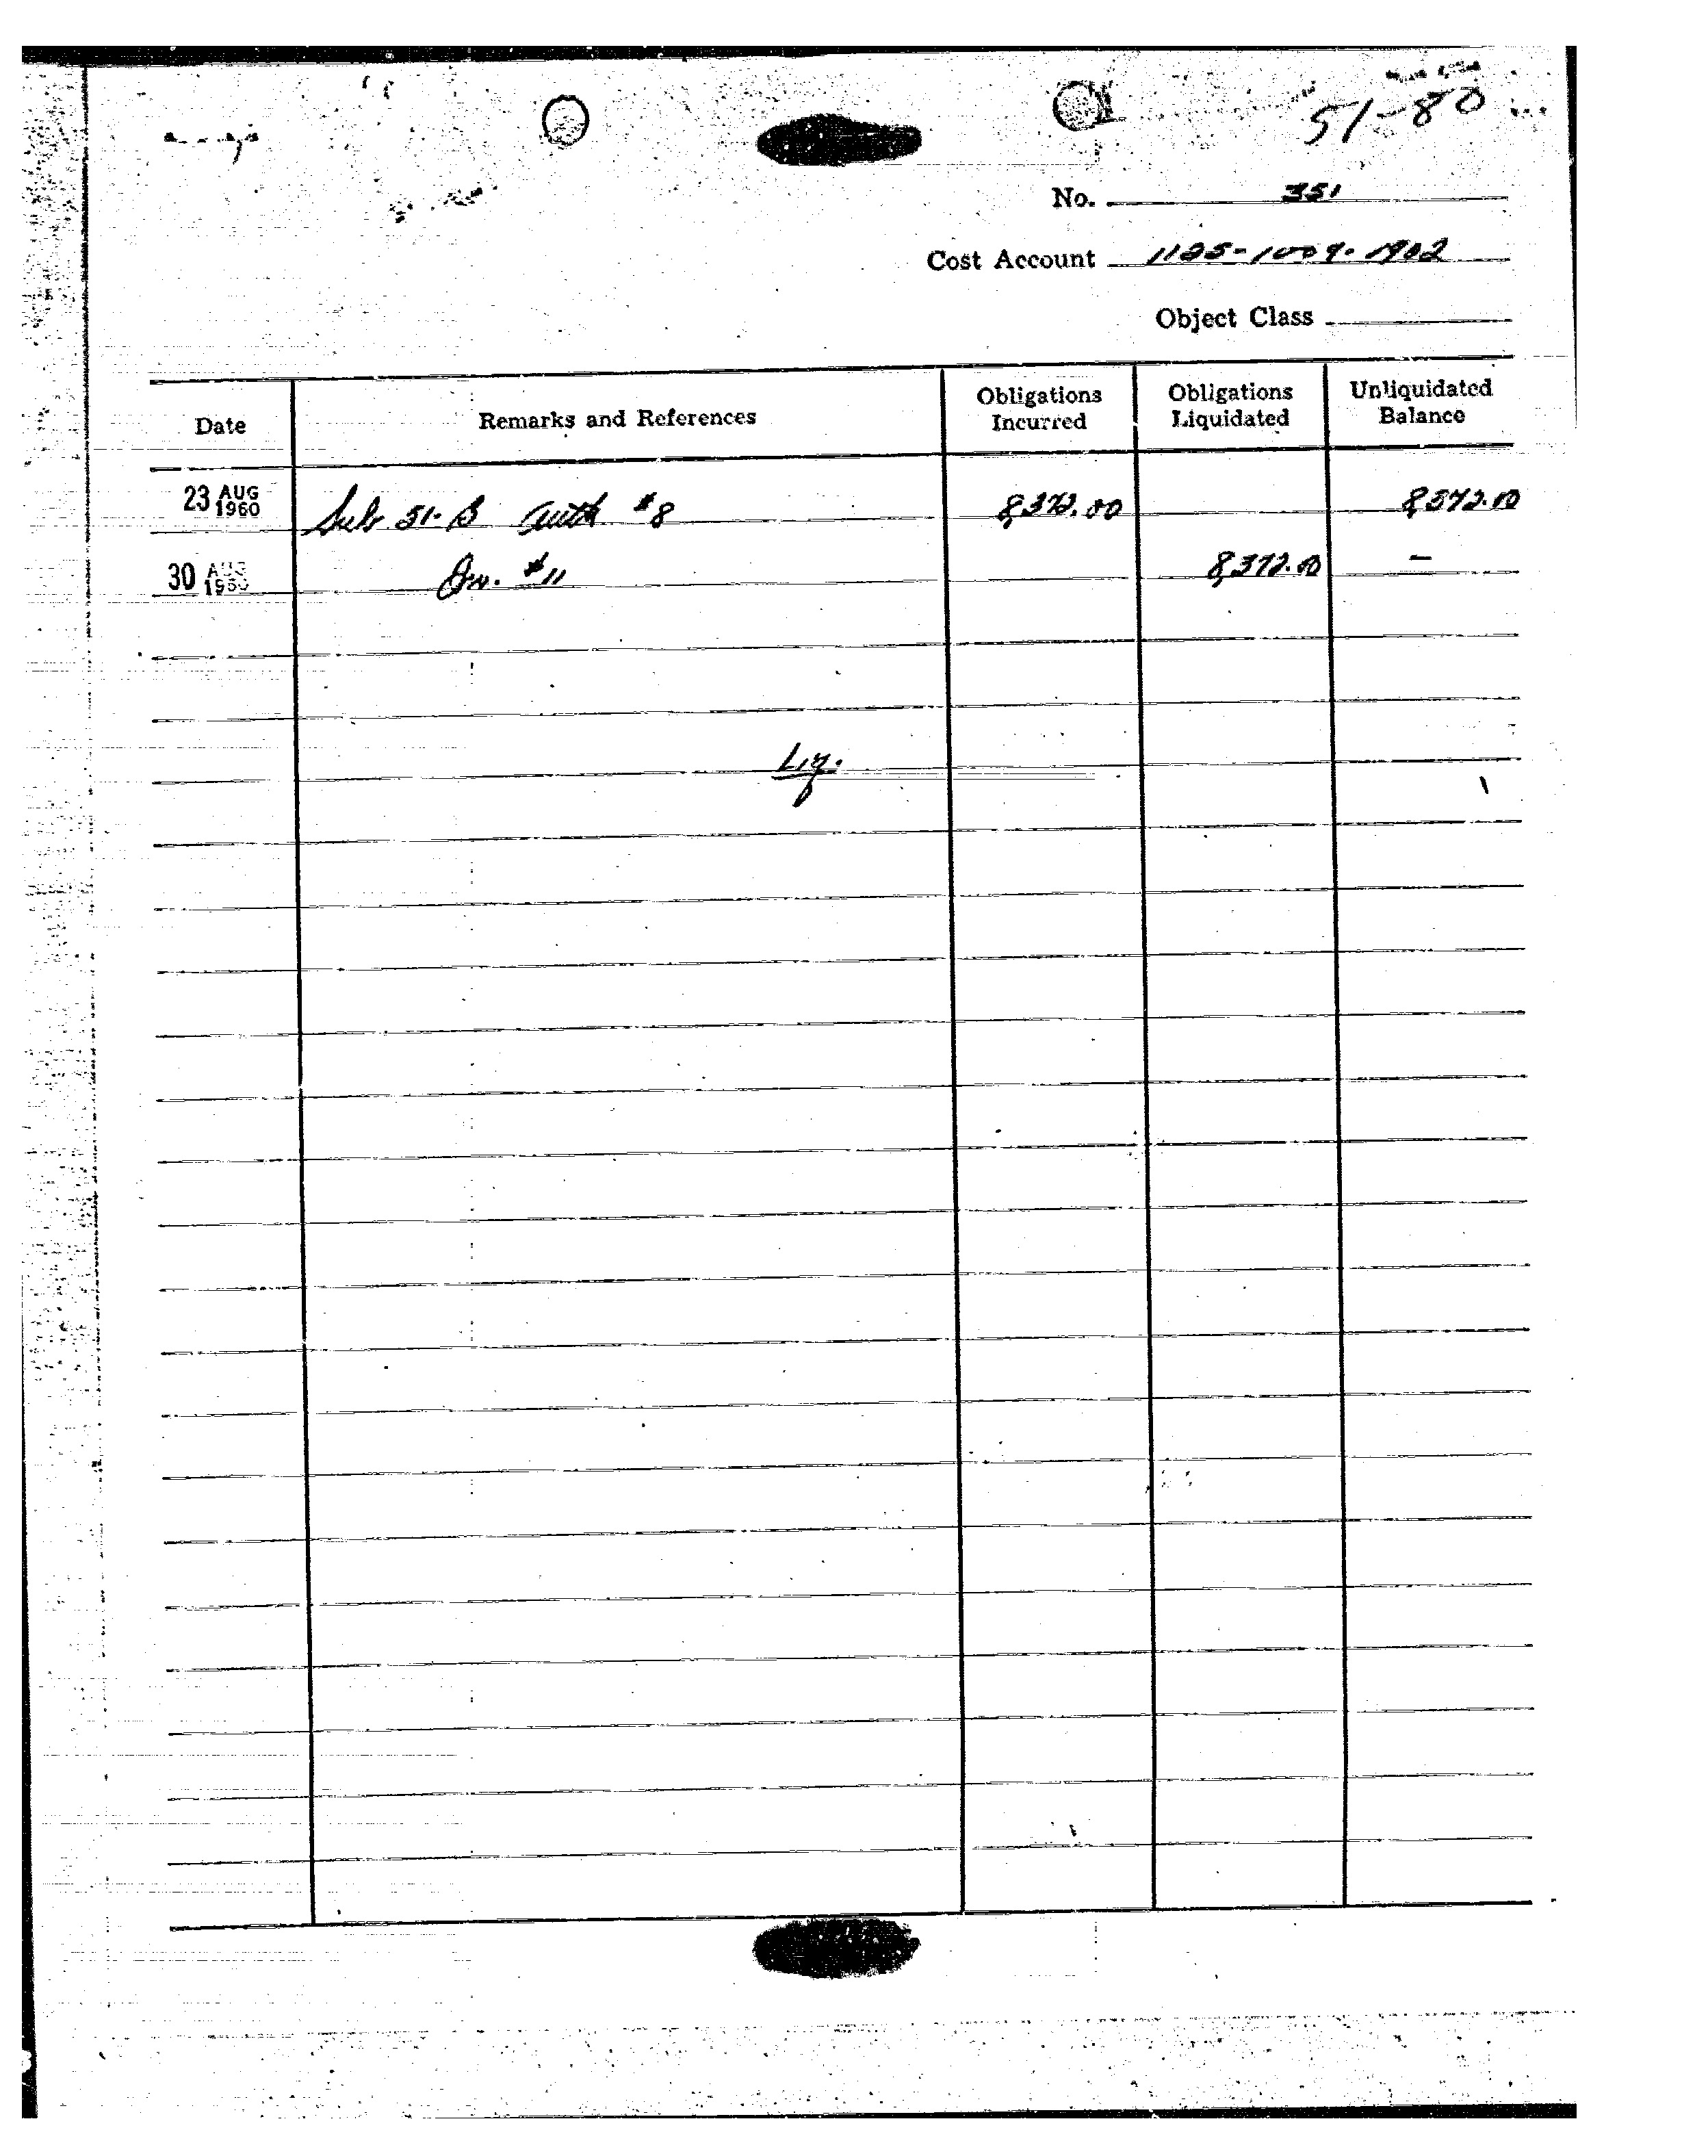 51-80
No. 351
Cost Account 1125-1009-1902
Object Class
Date Remarks and References Obligations Incurred Obligations Liquidated Unliquidated Balance
23 AUG 1960 Sub 51-B Auth #8 8,372.00 8,372.00
30 AUG 1960 Inv. #11 8,372.00 —
Liq.